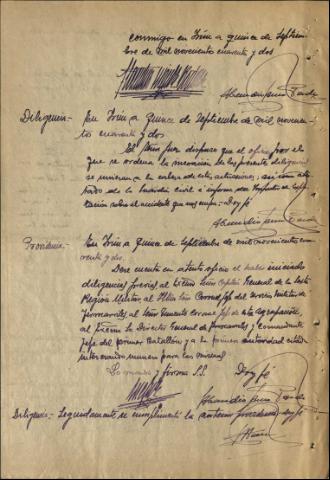 conmigo en Irún a quince de Septiem
bre de mil novecientos cuarenta y dos
Diligencia.- En Irún a quince de Septiembre de mil novecien-
tos cuarenta y dos
El Señor Juez dispuso que el oficio por el
que se ordena la incoación de las presentes diligencias
se unieran a la cabeza de estas actuaciones, así como ates-
tado de la Guardia Civil e informe
sobre el accidente que nos ocupa.- Doy fé
Providencia.- En Irún a quince de Septiembre de mil novecientos cua-
renta y dos.
Dése cuenta en atento oficio el haber iniciado
diligencias previas al Excmo Señor Capitán General de la Sexta
Región Militar al Iltmo Señor Coronel Jefe del Servicio Militar de
Ferrocarriles al Señor Teniente Coronel Jefe de esta Agrupación,
al Excmo Sr Director General de Ferrocarriles y Comandante
Jefe del primer Batallón y a la primera autoridad
Lo mandó y firma S.S. Doy fé
Diligencia.- Seguidamente se cumplimentó la anterior providencia doy fé